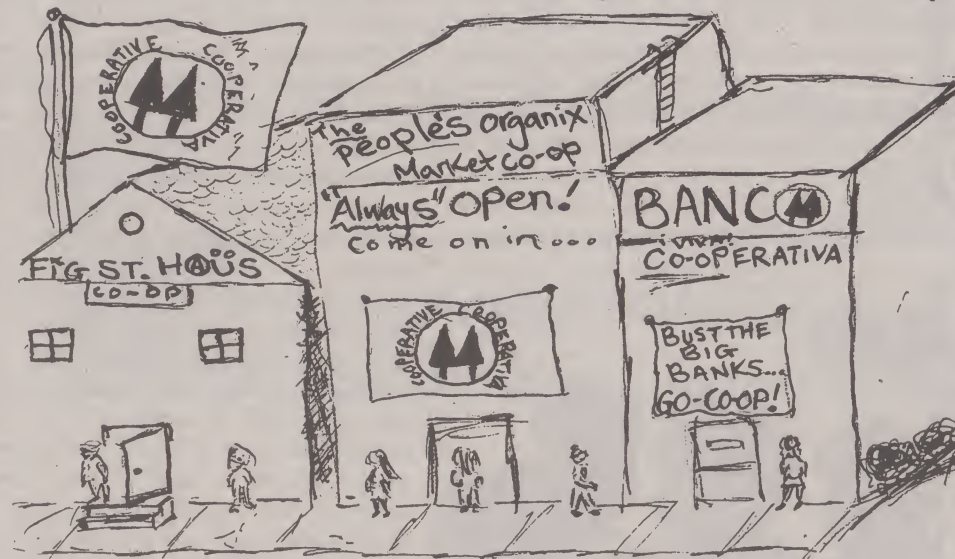 COOPERATIVE COOPERATIVA
FIG ST. HAÜS
CO-OP
The
People's Organix
Market CO-OP
"Always" Open!
Come on in...
COOPERATIVE COOPERATIVA
BANCO
¡VIVA!
CO-OPERATIVA
BUST THE
BIG
BANKS...
GO-CO-OP!